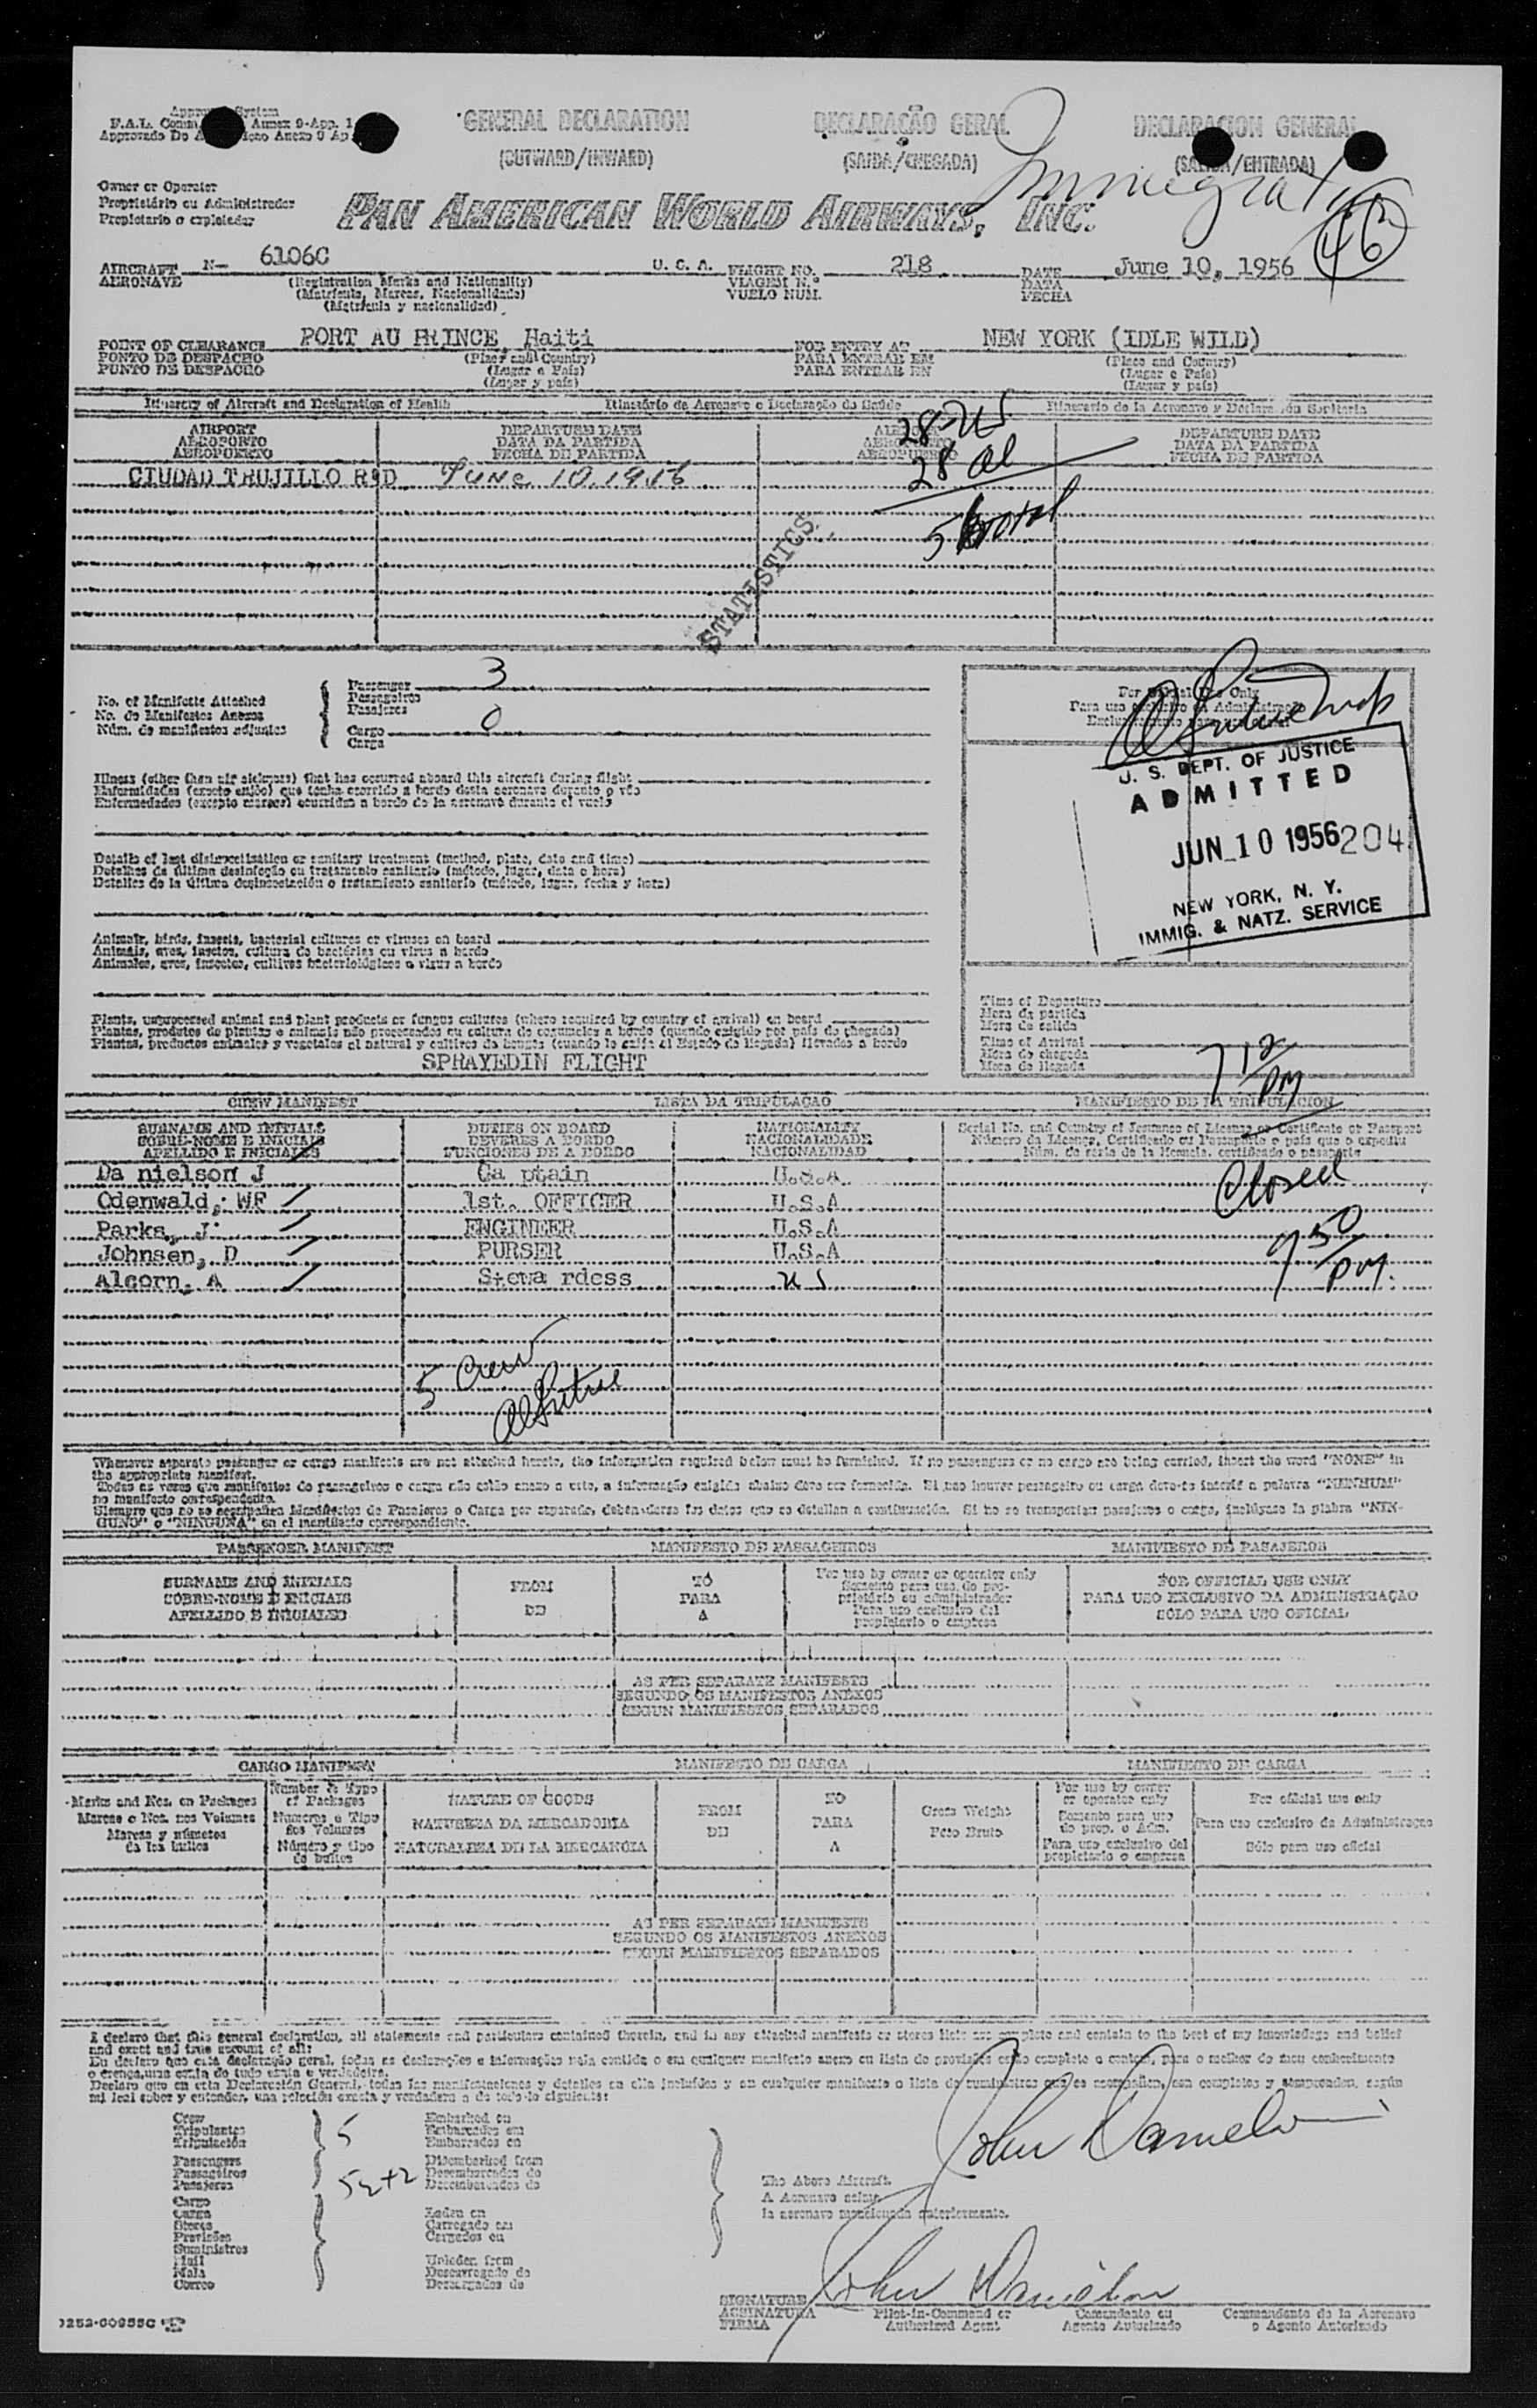 Approved System
F.A.L. Annex 9-App. 1
Aprovado De Anexo 9 Ap.
GENERAL DECLARATION DECLARAÇÃO GERAL DECLARACION GENERAL
(OUTWARD/INWARD) (SAIDA/CHEGADA) (SALIDA/ENTRADA)
Owner or Operator
Proprietário ou Administrador
Propietario o explotador
PAN AMERICAN WORLD AIRWAYS, INC.
46
AIRCRAFT N- 6106C U. S. A. FLIGHT NO. 218 DATE June 10, 1956
AERONAVE (Registration Marks and Nationality) VIAGEM N.º DATA
(Matrícula, Marcas, Nacionalidade) VUELO NUM. FECHA
(Matrícula y nacionalidad)
POINT OF CLEARANCE PORT AU PRINCE, Haiti FOR ENTRY AT NEW YORK (IDLE WILD)
PONTO DE DESPACHO (Place and Country) PARA ENTRAR EM (Place and Country)
PUNTO DE DESPACHO (Lugar e País) PARA ENTRAR EN (Lugar e País)
(Lugar y país) (Lugar y país)
Itinerary of Aircraft and Declaration of Health Itinerário de Aeronave e Declaração da Saúde Itinerario de la Aeronave y Declaración Sanitaria
AIRPORT DEPARTURE DATE AIRPORT DEPARTURE DATE
AEROPORTO DATA DA PARTIDA AEROPORTO DATA DA PARTIDA
AEROPUERTO FECHA DE PARTIDA AEROPUERTO FECHA DE PARTIDA
28-US
28 al
CIUDAD TRUJILLO R D June 10, 1956
total
STATISTICS
No. of Manifests Attached Passenger 3
No. de Manifestos Anexos Passageiros
Núm. de manifiestos adjuntos Pasajeros
Cargo 0
Carga
For Official Use Only
Illness (other than air sickness) that has occurred aboard this aircraft during flight
Enfermidades (exceto enjôo) que tenha ocorrido a bordo desta aeronave durante o vôo
Enfermedades (excepto mareos) ocurridas a bordo de la aeronave durante el vuelo
U. S. DEPT. OF JUSTICE
ADMITTED
JUN 10 1956 204
NEW YORK, N. Y.
IMMIG. & NATZ. SERVICE
Details of last disinsectisation or sanitary treatment (method, place, date and time)
Detalhes da última desinfeção ou tratamento sanitario (método, lugar, data e hora)
Detalles de la última desinsectación o tratamiento sanitario (método, lugar, fecha y hora)
Animals, birds, insects, bacterial cultures or viruses on board
Animais, aves, insetos, cultura de bactérias ou virus a bordo
Animales, aves, insectos, cultivos bacteriológicos o virus a bordo
Plants, unprocessed animal and plant products or fungus cultures (where required by country of arrival) on board
Plantas, produtos de plantas e animais não processados ou cultura de cogumelos a bordo (quando exigido por país de chegada)
Plantas, productos animales y vegetales al natural y cultivos de hongos (cuando lo exija el Estado de llegada) llevados a bordo
SPRAYEDIN FLIGHT
Time of Departure
Hora da partida
Hora de salida
Time of Arrival 7 12 pm
Hora de chegada
Hora de llegada
CREW MANIFEST LISTA DA TRIPULAÇÃO MANIFIESTO DE LA TRIPULACION
SURNAME AND INITIALS DUTIES ON BOARD NATIONALITY Serial No. and Country of Issuance of License or Certificate or Passport
SOBRE-NOME E INICIAIS DEVERES A BORDO NACIONALIDADE Número da Licença, Certificado ou Passaporte e país que o expediu
APELLIDO E INICIALES FUNCIONES DE A BORDO NACIONALIDAD Núm. de serie de la licencia, certificado o pasaporte
Da nielson J Ca ptain U.S.A
Odenwald, WF 1st. OFFICER U.S.A
Parks, J ENGINEER U.S.A
Johnsen, D PURSER U.S.A
Alcorn, A Stewa rdess US
Closed
950 pm.
5 Crew
Whenever separate passenger or cargo manifests are not attached hereto, the information required below must be furnished. If no passengers or no cargo are being carried, insert the word "NONE" in
the appropriate manifest.
Todas as vezes que manifestos de passageiros e carga não estão anexo a este, a informação exigida abaixo deve ser fornecida. Si nao houver passageiro ou carga deve-se inserir a palavra "NENHUM"
no manifesto correspondente.
Siempre que no se acompañen Manifiestos de Pasajeros o Carga por separado, deben darse los datos que se detallan a continuación. Si no se transportan pasajeros o carga, inclúyase la plabra "NIN-
GUNO" o "NINGUNA" en el manifiesto correspondiente.
PASSENGER MANIFEST MANIFESTO DE PASSAGEIROS MANIFIESTO DE PASAJEROS
SURNAME AND INITIALS FROM TO For use by owner or operator only FOR OFFICIAL USE ONLY
SOBRE-NOME E INICIAIS DE PARA Somente para uso do proprietário ou administrador PARA USO EXCLUSIVO DA ADMINISTRAÇAO
APELLIDO E INICIALES A Para uso exclusivo del propietario o empresa SÓLO PARA USO OFICIAL
AS PER SEPARATE MANIFESTS
SEGUNDO OS MANIFESTOS ANEXOS
SEGUN MANIFIESTOS SEPARADOS
CARGO MANIFEST MANIFESTO DE CARGA MANIFIESTO DE CARGA
Marks and Nos. on Packages Number & Type of Packages NATURE OF GOODS FROM TO Gross Weight For use by owner or operator only For official use only
Marcas e Nos. nos Volumes Numeros e Tipo dos Volumes NATUREZA DA MERCADORIA DE PARA Peso Bruto Somente para uso do prop. o Adm. Para uso exclusivo da Administraçao
Marcas y números de los bultos Número y tipo de bultos NATURALEZA DE LA MERCANCIA A Para uso exclusivo del propietario o empresa Sólo para uso oficial
AS PER SEPARATE MANIFESTS
SEGUNDO OS MANIFESTOS ANEXOS
SEGUN MANIFIESTOS SEPARADOS
I declare that this general declaration, all statements and particulars contained therein, and in any attached manifests or stores lists are complete and contain to the best of my knowledge and belief
and exact and true account of all:
Eu declaro que esta declaração geral, todas as declarações e informações nela contida o em qualquer manifesto anexo ou lista de provisões estão completo e contem, para o melhor do meu conhecimento
e crença, uma conta de tudo exata e verdadeira.
Declaro que en esta Declaración General, todas las manifestaciones y detalles en ella incluídos y en cualquier manifiesto o lista de suministros que es acompañen, son completos y comprenden, según
mi leal saber y entender, una relación exacta y verdadera a de todo lo siguiente:
Crew 5 Embarked on
Tripulantes Embarcados em
Tripulación Embarcados en
Passengers 52+2 Disembarked from
Passageiros Desembarcados de
Pasajeros Desembarcados de
Cargo
Carga Laden on
Stores Carregado em
Provisões Cargados en
Suministros
Mail Unladen from
Mala Descarregado de
Correo Descargados de
The Above Aircraft.
A Aeronave acima
la aeronave mencionada anteriormente.
John Danielson
SIGNATURE John Danielson
ASSINATURA Pilot-in-Command or Comandante ou Commandante de la Aeronave
FIRMA Authorized Agent Agente Autorizado o Agente Autorizado